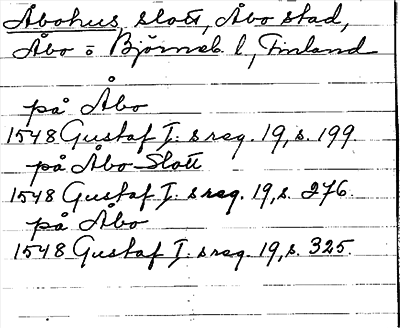 Åbohus slott, Åbo stad,
Åbo o Björneb. l, Finland
på Åbo
1548 Gustaf I: s reg. 19, s. 199.
på Åbo Slott
1548 Gustaf I: s reg. 19, s. 276.
på Åbo
1548 Gustaf I: s reg. 19, s. 325.